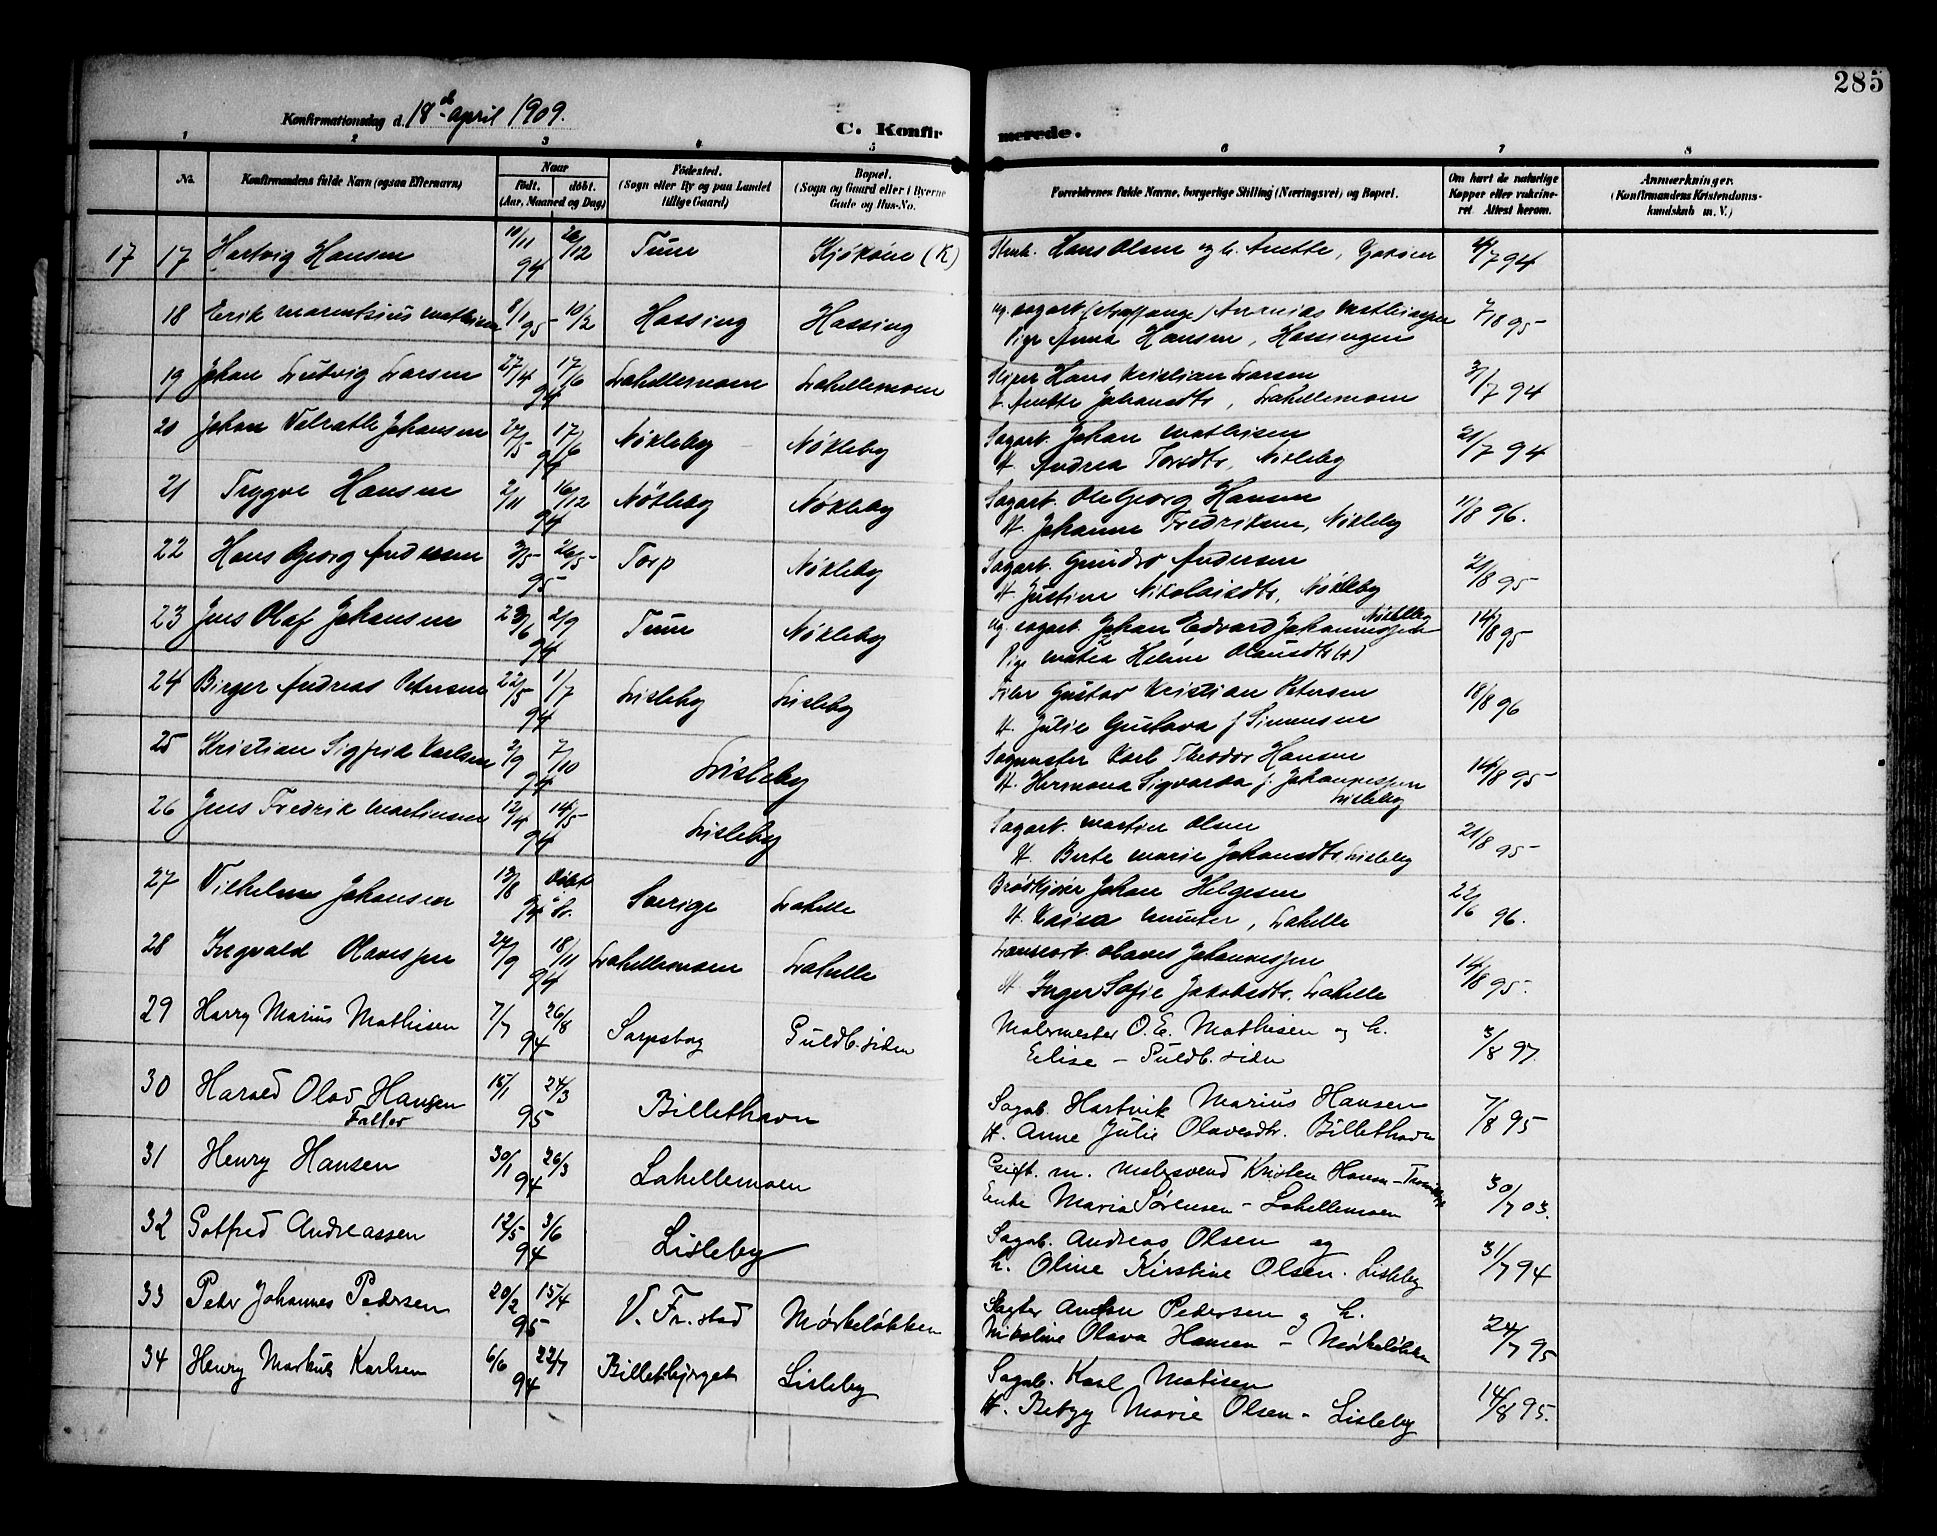 285
Konfirmationsdag d. 18d april 1909.
C. Konfirmerede.
1 2 3 4 5 6 7 8
No. Konfirmandens fulde Navn (ogsaa Efternavn) Naar født. døbt. (Aar, Maaned og Dag) Fødested. (Sogn eller By og paa Landet tillige Gaard) Bopæl. (Sogn og Gaard eller i Byerne Gade og Hus-No. Forældrenes fulde Navne, borgerlige Stilling (Næringsvei) og Bopæl. Om havt de naturlige Kopper eller vakcineret Attest herom. Anmærkninger. (Konfirmandens Kristendomskundskab m. V.)
17 17 Hartvig Hansen 10/11 94 26/12 Tune Kjøkøie (K) Hans Olsen og h. Anette,
7 94
18 Erik 8/1 95 10/2 Hassing Hassing ug. sagarb.
Pige Anna Hansen, Hassingen 7/8 95
19 Johan Ludvig Larsen 27/4 94 17/6 Lahellemoen Lahellemoen Hans Kristian Larsen
H. Anette Johansdtr, Lahellemoen 3/7 94
20 Johan Valrath Johansen 27/5 94 17/6 Nøkleby Nøkleby Sagarb. Johan Mathisen
H. Andrea Nøkleby 21/7 94
21 Trygve Hansen 2/11 94 16/12 Nøkleby Nøkleby Sagarb. Ole Georg Hansen
H. Johanne Fredriksen, Nøkleby 11/8 96.
22 Hans Georg Andersen 3/5 95 26/5 Torp Nøkleby Sagarb. Andersen
H. Justine Nikolaisdtr, Nøkleby 21/8 95
23 Jens Olaf Johansen 23/6 94 2/9 Tune Nøkleby ug. sagarb. Johan Edvard Johannessen Nøkleby
Pige Helene Olausdtr (+) 14/8 95
24 Birger Andreas Petersen 22/5 94 1/7 Lisleby Lisleby Filer Gustav Kristian Petersen
H. Julie Gustava f. Simensen 18/8 96
25 Kristian Sigfrid Karlsen 2/9 94 7/10 Lisleby Sagmester Karl Theodor Hansen
H. Hermana Sigvarda f. Johannessen
Lisleby 14/8 95
26 Jens Fredrik Martinsen 12/4 94 14/5 Lisleby Sagarb. Martin Olsen
H. Berte Marie Johansdtr Lisleby 21/8 95
27 Vilhelm Johansen 13/8 94 døbt i Sv. Sverige Lahelle Brødkjører Johan Helgesen
H. Kaisa Lahelle 22/6 96.
28 Ingvald Olavessen 27/9 94 18/11 Lahellemoen Lahelle Olaves Johannessen
H. Inger Sofie Jakobsdtr. Lahelle 14/8 95.
29 Harry Marius Mathisen 7/7 94 26/8 Sarpsborg Guldb.siden Malermester O. E. Mathisen og h.
Elise – Guldb.siden 3/8 97
30 Harald Olav Hansen
Falter 15/1 95 24/3 Billethavn Sagab. Hartvik Marius Hansen
H. Anne Julie Olavesdtr. Billethavn 7/8 95
31 Henry Hansen 30/1 94 26/3 Lahellemoen Gift. m. Malersvend Kristen Hansen –
Enke Maria Sørensen – Lahellemoen 30/7 03.
32 Gotfred Andreassen 12/5 94 3/6 Lisleby Sagab. Andreas Olsen og
h. Oline Kirstine Olsen. Lisleby 31/7 94
33 Peder Johannes Pedersen 20/2 95 15/4 V. Fr.stad Mørkeløkken Anton Pedersen og h.
Nikoline Olava Hansen – Mørkeløkken 24/7 95
34 Henry Markus Karlsen 6/6 94 22/7 Billetbjerget Lisleby Sagab. Karl Matisen
H. Betzy Marie Olsen – Lisleby 14/8 95.